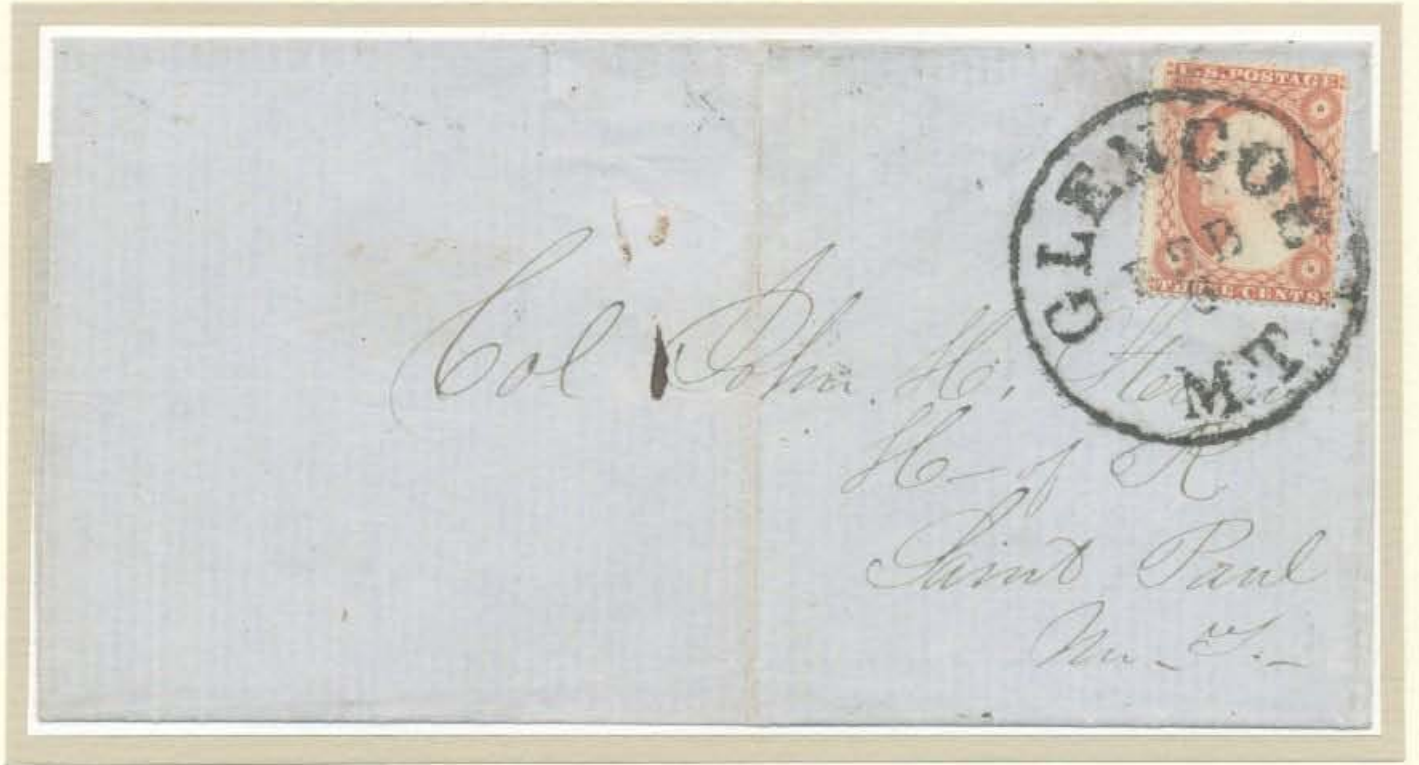 U.S. POSTAGE
THREE CENTS
GLENCOE
FEB
M.T.
Col John. H. Stevens
H- of R
Saint Paul
M. T.